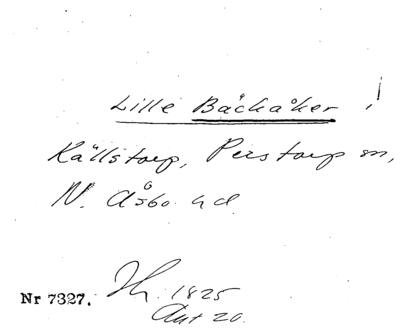 Lille Bäckåker !
Källstorp, Perstorp sn,
N. Åsbo hd.
Nr 7327. Hh. 1825
Akt 20.